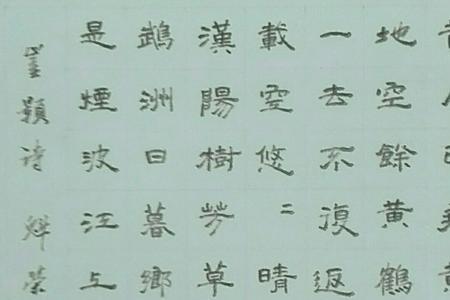 地空餘黃鶴
一去不復返
載空悠〻晴
漢陽樹芳草
鵡洲日暮鄉
是煙波江上
崔顥詩 榮